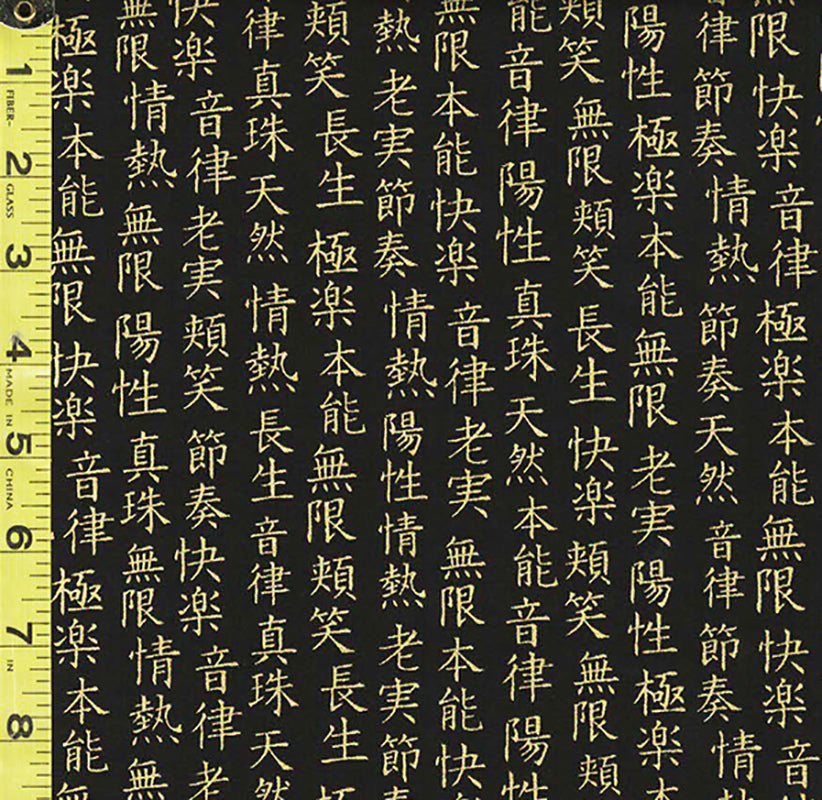 無限快楽音律極楽本能無限快楽音
音律節奏情熱節奏天然音律節奏情熱
陽性極楽本能無限老実陽性極楽本
頬笑無限頬笑長生快楽頬笑無限頬
能音律陽性真珠天然本能音律陽性
無限本能快楽音律老実無限本能快楽
熱老実節奏情熱陽性情熱老実節奏
頬笑長生極楽本能無限頬笑長生極
律真珠天然情熱長生音律真珠天然
快楽音律老実頬笑節奏快楽音律老
無限情熱無限陽性真珠無限情熱無
極楽本能無限快楽音律極楽本能無
1 FIBER- 2 GLASS 3 4 MADE IN 5 CHINA 6 7 IN 8